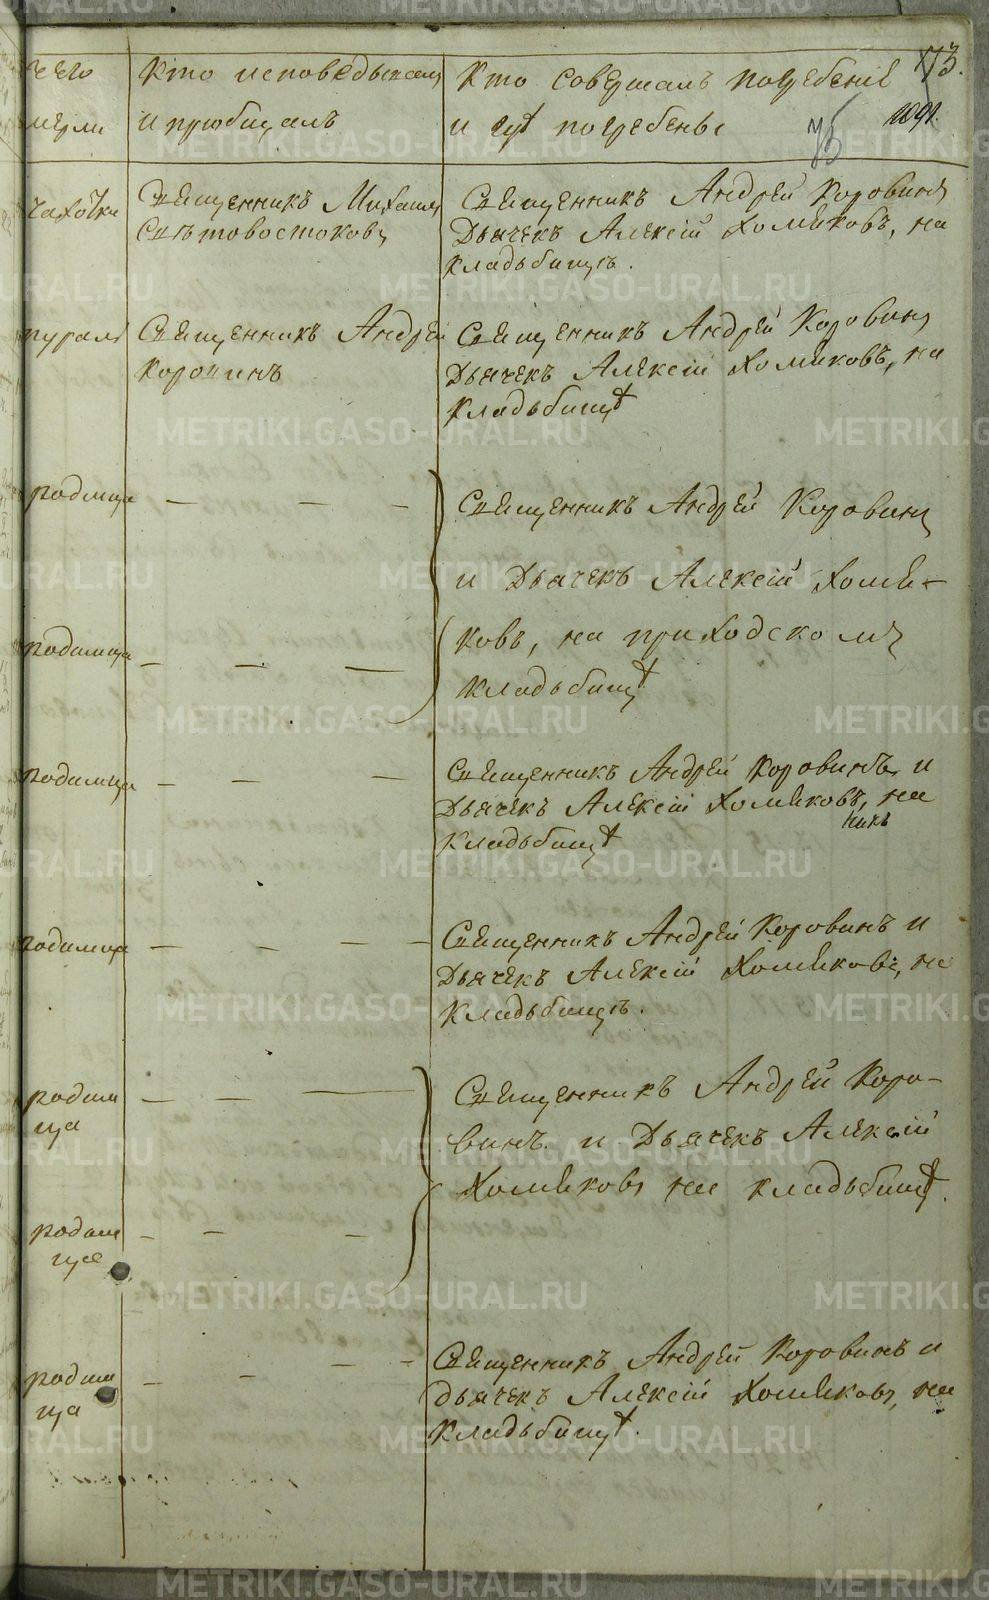 173.
1091.
75
чего мерли
Кто исповедывалъ
и приобщалъ
Кто совершалъ погребенiе
и гдѣ погребены
чахотки
Священникъ Михаилъ
Свѣтовостоковъ
Священникъ Андрей Коровинъ
Дьячекъ Алексiй Хомяковъ, на
кладьбищѣ.
Священникъ Андрей
Коровинъ
Священникъ Андрей Коровинъ
Дьячекъ Алексiй Хомяковъ, на
кладьбищѣ
родимца — — —
Священникъ Андрей Коровинъ
и Дьячекъ Алексiй Хомя-
ковъ, на приходскомъ
кладьбищѣ
родимца — — —
родимца — — —
Священникъ Андрей Коровинъ и
Дьячекъ Алексiй Хомяковъ, на
кладьбищѣ
родимца — — — —
Священникъ Андрей Коровинъ и
Дьячекъ Алексiй Хомяковъ, на
кладьбищѣ.
родим
ца — — —
Священникъ Андрей Коро-
винъ и Дьячекъ Алексiй
Хомяковъ на кладьбищѣ.
родим
ца — — —
родим
ца — — — —
Священникъ Андрей Коровинъ и
дьячекъ Алексiй Хомяковъ, на
кладьбищѣ.
METRIKI.GASO-URAL.RU